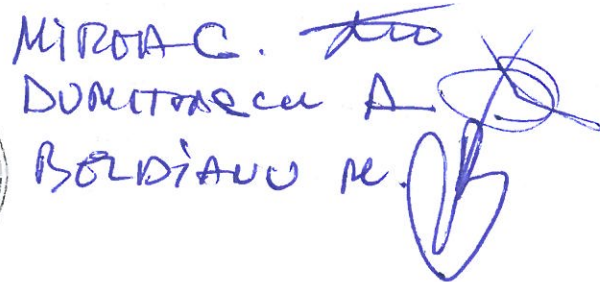 MIRON C.
DUMITRAȘCU A.
BERDIANU M.